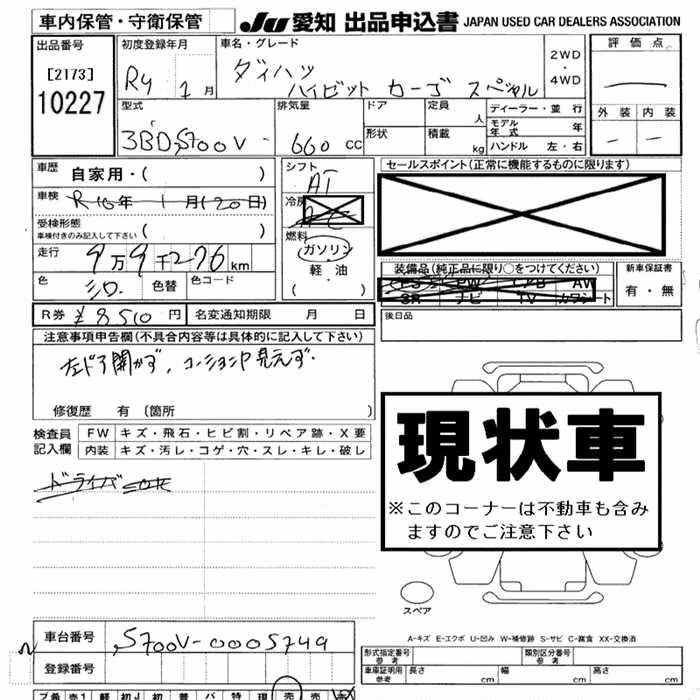 車内保管・守衛保管 JU 愛知 出品申込書 JAPAN USED CAR DEALERS ASSOCIATION
出品番号 初度登録年月 車名・グレード 評価点
[2173] R4 月 ダイハツ 2WD・4WD
10227 ハイゼット カーゴ スペシャル
型式 排気量 ドア 定員 人 ディーラー・並 行 外装 内装
3BD-S700V 660 cc 形状 積載 kg モデル年式 年
ハンドル 左・右
車歴 自家用・( ) シフト AT セールスポイント(正常に機能するものに限ります)
車検 年 1月(20日) 冷房
受検形態 ( )
車検付きのみ記入して下さい 燃料
走行 9万9千276km ガソリン
軽油
・( )
色 シロ 色替 色コード 装備品(純正品に限り○をつけてください) 新車保証書
PS PW AW 有・無
SR ナビ TV カワシート
R券 ¥8510円 名変通知期限 月 日 後日品
注意事項申告欄(不具合内容等は具体的に記入して下さい)
左ドア開かず、コンションP見えず。
修復歴 有 〔箇所 〕
検査員記入欄 FW キズ・飛石・ヒビ割・リペア跡・X要
内装 キズ・汚レ・コゲ・穴・スレ・キレ・破レ
現状車
※このコーナーは不動車も含みますのでご注意下さい
ドライバー
スペア
A-キズ E-エクボ U-凹み W-補修跡 S-サビ C-腐食 XX-交換済
車台番号 S700V-0005749
登録番号
形式指定番号 参考 類別区分番号 参考
車庫証明用 参考 長さ cm 幅 cm 高さ cm